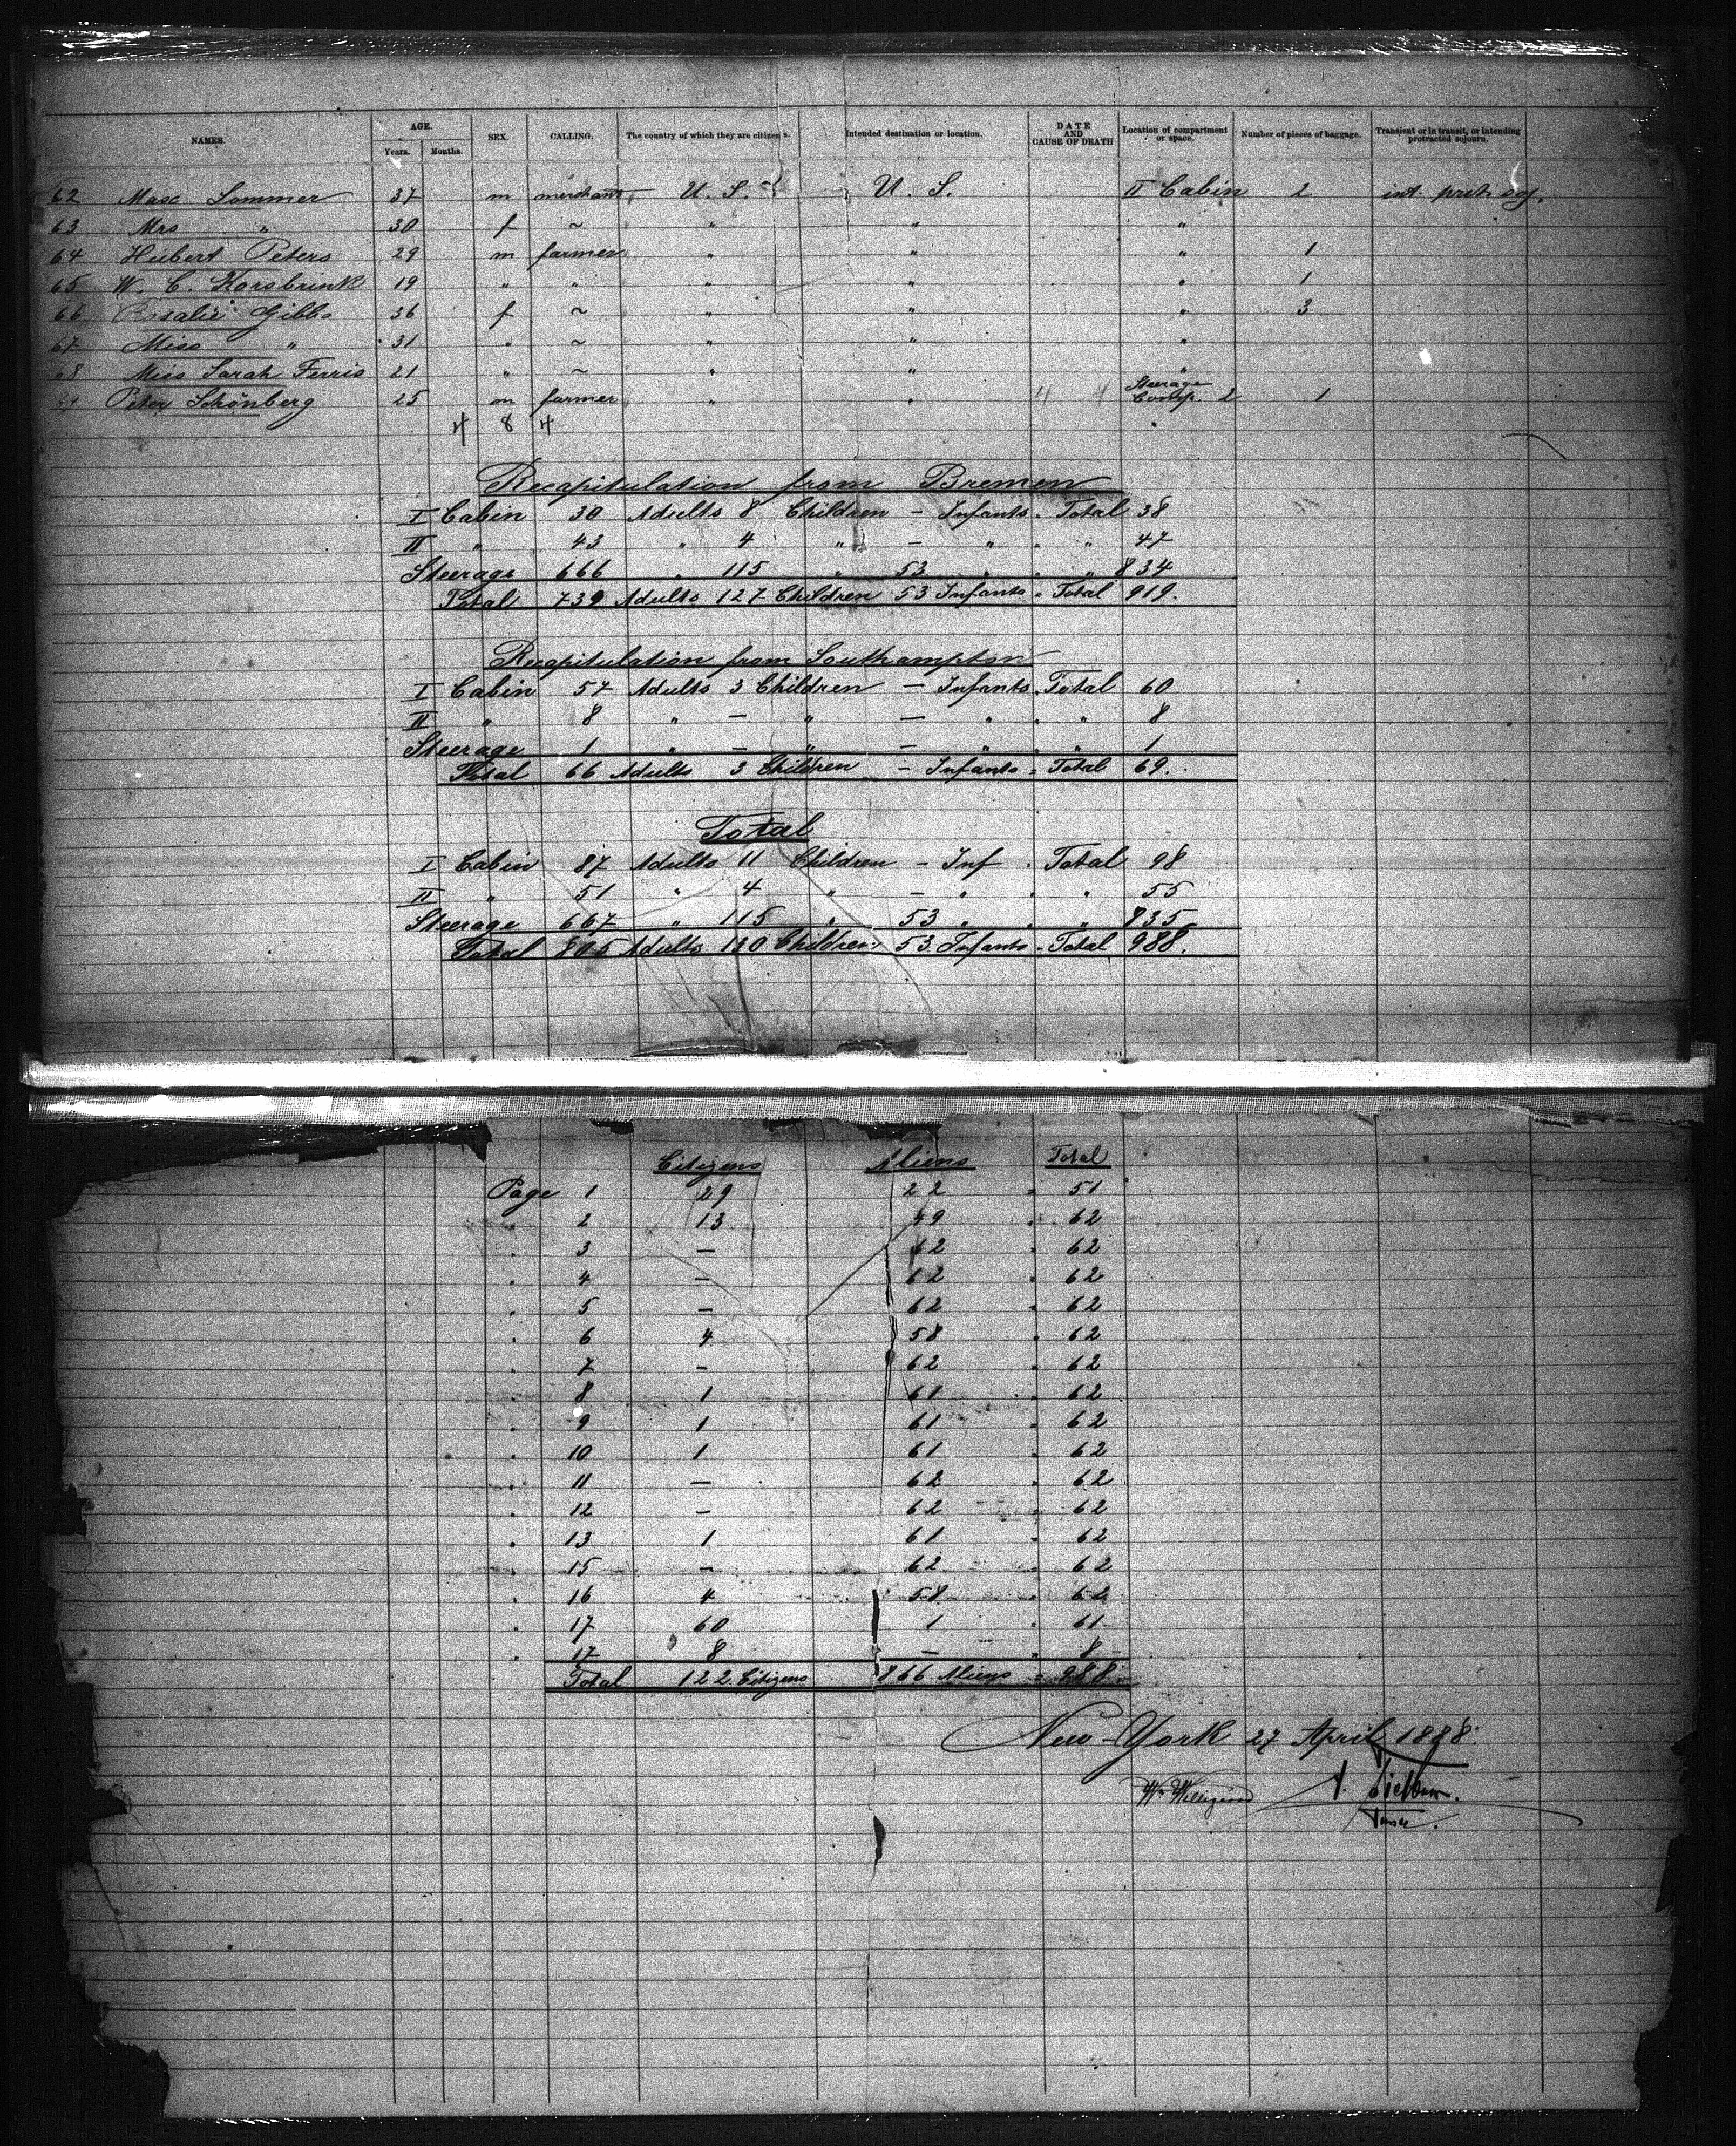 NAMES. AGE. Years. Months. SEX. CALLING. The country of which they are citizens. Intended destination or location. DATE AND CAUSE OF DEATH Location of compartment or space. Number of pieces of baggage. Transient or in transit, or intending protracted sojourn.
62 Max Sommer 37 m merchant U. S. U. S. II Cabin 2 int. protr. soj.
63 Mrs " 30 f ~ " " "
64 Hubert Peters 29 m farmer " " " 1
65 W. C. Korsbrink 19 " " " " " 1
66 Rosalie Gibbs 36 f ~ " " " 3
67 Miss " 31 " ~ " " "
68 Miss Sarah Ferris 21 " ~ " " "
69 Peter Schönberg 25 m farmer " " 4 4 Steerage Comp. 2 1
4 8 4
Recapitulation from Bremen
I Cabin 30 Adults 8 Children – Infants = Total 38
II " 43 " 4 " – " = " 47
Steerage 666 " 115 " 53 " = " 834
Total 739 Adults 127 Children 53 Infants = Total 919.
Recapitulation from Southampton
I Cabin 57 Adults 3 Children – Infants = Total 60
II " 8 " – " – " = " 8
Steerage 1 " – " – " = " 1
Total 66 Adults 3 Children – Infants = Total 69.
Total
I Cabin 87 Adults 11 Children – Inf = Total 98
II " 51 " 4 " – " = " 55
Steerage 667 " 115 " 53 " = " 835
Total 805 Adults 130 Children 53 Infants = Total 988.
Citizens Aliens Total
Page 1 29 22 = 51
" 2 13 49 = 62
" 3 – 62 = 62
" 4 – 62 = 62
" 5 – 62 = 62
" 6 4 58 = 62
" 7 – 62 = 62
" 8 1 61 = 62
" 9 1 61 = 62
" 10 1 61 = 62
" 11 – 62 = 62
" 12 – 62 = 62
" 13 1 61 = 62
" 15 – 62 = 62
" 16 4 58 = 62
" 17 60 1 = 61
" 17 8 – = 8
Total 122 Citizens 866 Aliens = 988.
New-York 27 April 1888.